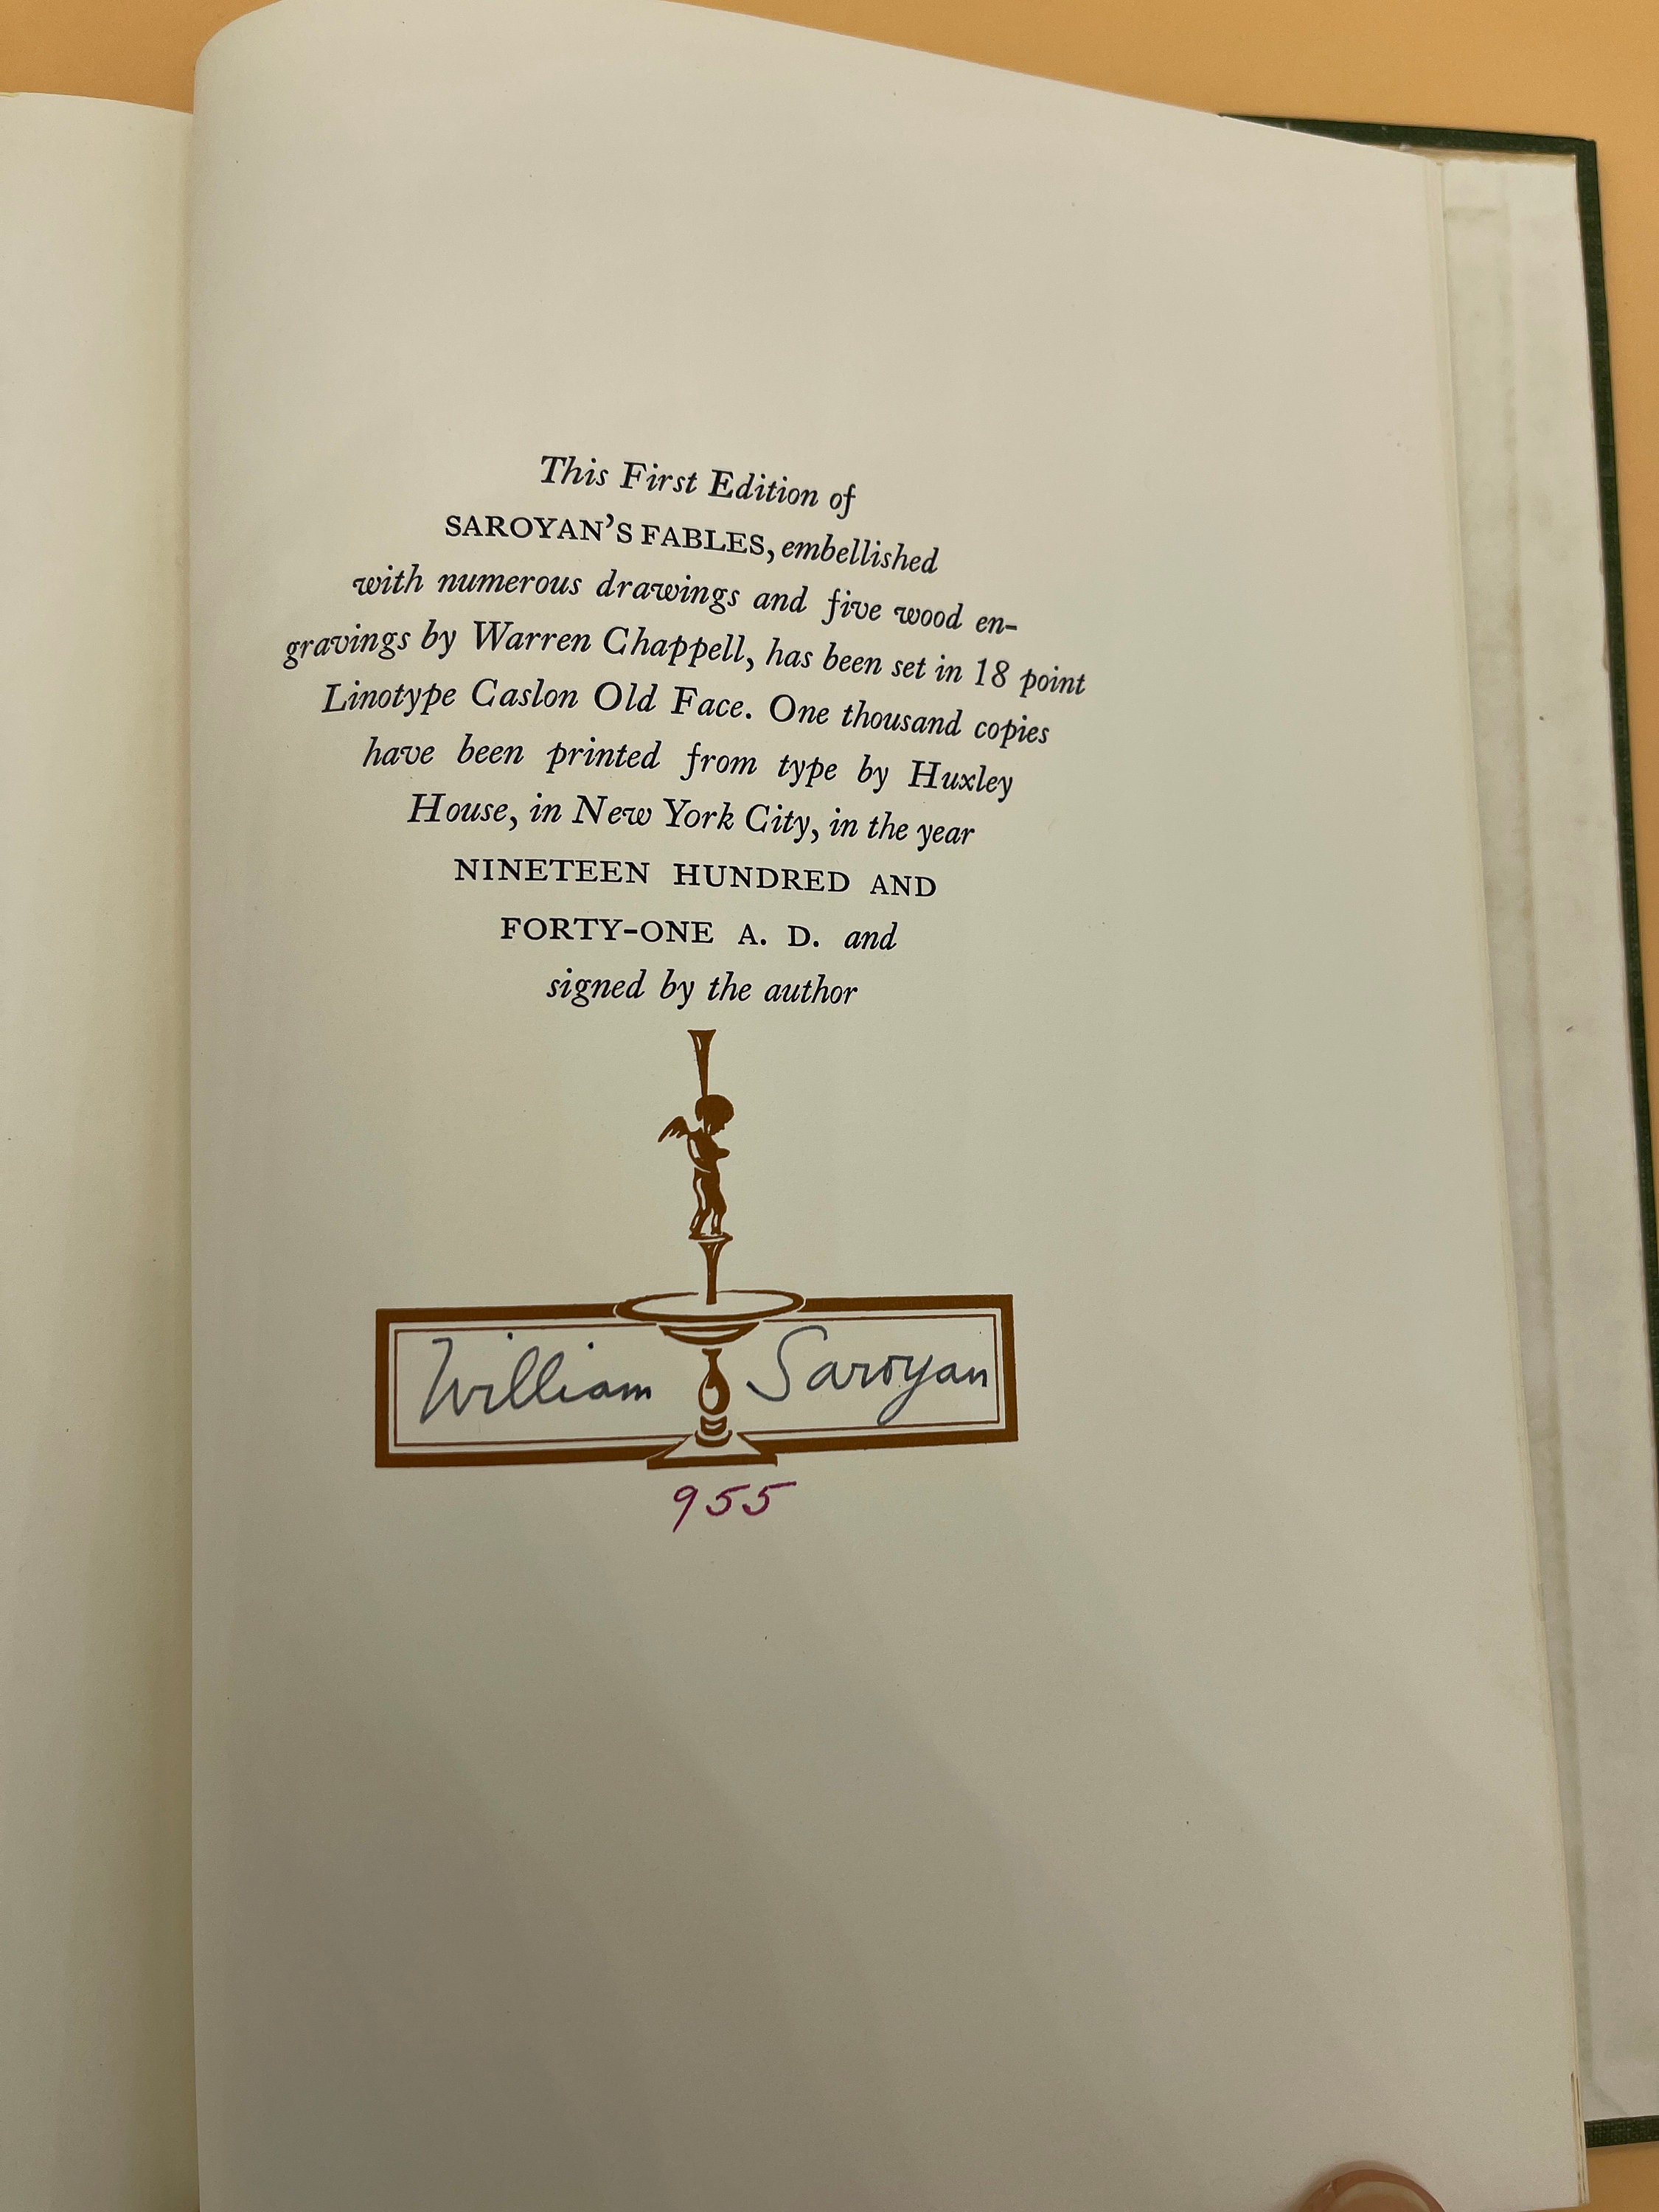 This First Edition of
SAROYAN'S FABLES, embellished
with numerous drawings and five wood en-
gravings by Warren Chappell, has been set in 18 point
Linotype Caslon Old Face. One thousand copies
have been printed from type by Huxley
House, in New York City, in the year
NINETEEN HUNDRED AND
FORTY-ONE A. D. and
signed by the author
William Saroyan
955